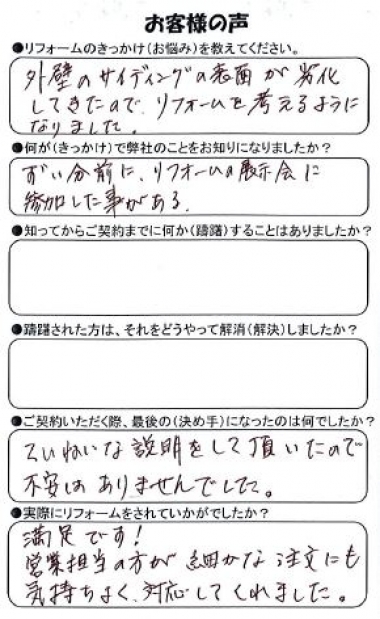 お客様の声
●リフォームのきっかけ(お悩み)を教えてください。
外壁のサイディングの表面が劣化
してきたので、リフォームを考えるように
なりました。
●何が(きっかけ)で弊社のことをお知りになりましたか?
ずい分前に、リフォームの展示会に
参加した事がある。
●知ってからご契約までに何か(躊躇)することはありましたか?
●躊躇された方は、それをどうやって解消(解決)しましたか?
●ご契約いただく際、最後の(決め手)になったのは何でしたか?
ていねいな説明をして頂いたので
不安はありませんでした。
●実際にリフォームをされていかがでしたか?
満足です!
営業担当の方が細かな注文にも
気持ちよく、対応してくれました。